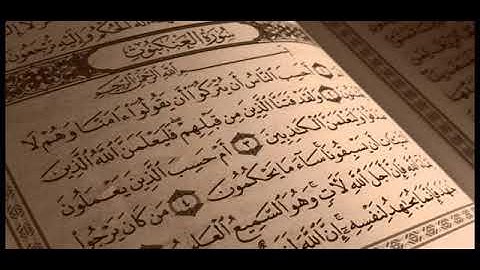 سُورَةُ العَنكَبُوتِ
بِسْمِ اللَّهِ الرَّحْمَٰنِ الرَّحِيمِ
أَحَسِبَ النَّاسُ أَن يُتْرَكُوا أَن يَقُولُوا ءَامَنَّا وَهُمْ لَا
وَلَقَدْ فَتَنَّا الَّذِينَ مِن قَبْلِهِمْ فَلَيَعْلَمَنَّ اللَّهُ الَّذِينَ
وَلَيَعْلَمَنَّ الْكَٰذِبِينَ ٣ أَمْ حَسِبَ الَّذِينَ يَعْمَلُونَ
أَن يَسْبِقُونَا سَاءَ مَا يَحْكُمُونَ ٤ مَن كَانَ يَرْجُوا
فَإِنَّ أَجَلَ اللَّهِ لَآتٍ وَهُوَ السَّمِيعُ الْعَلِيمُ
فَإِنَّمَا يُجَٰهِدُ لِنَفْسِهِ إِنَّ اللَّهَ